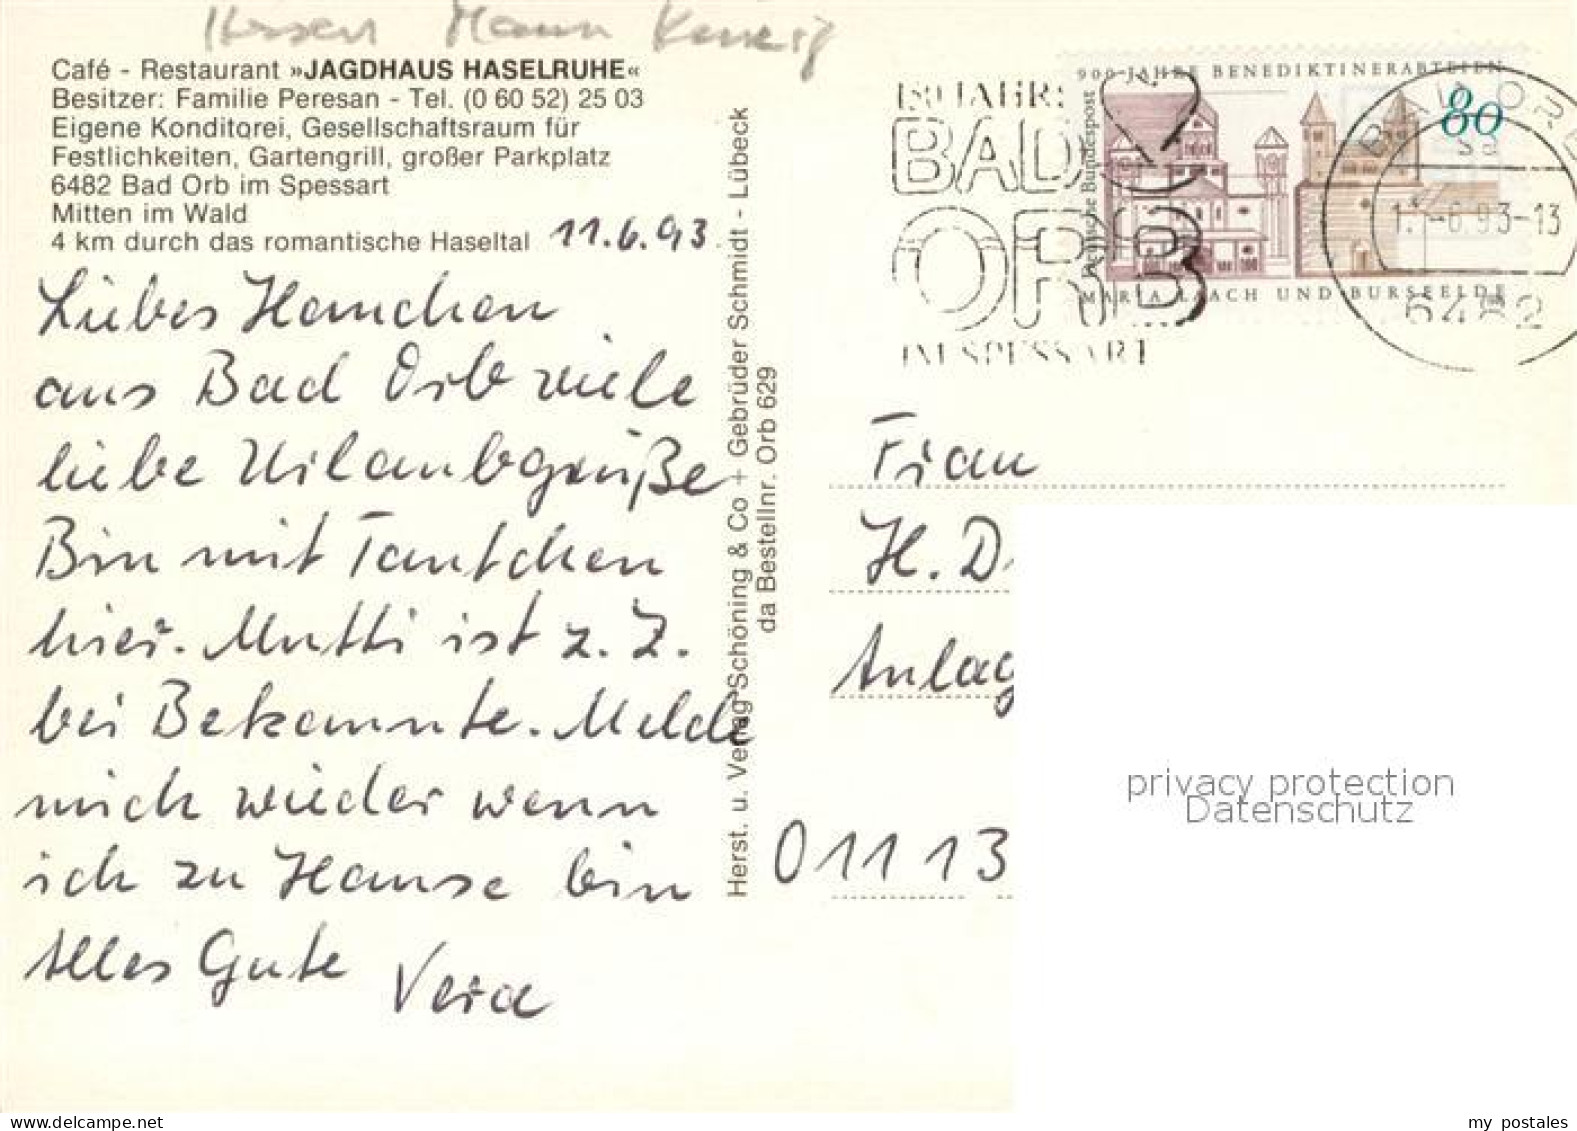 Café - Restaurant »JAGDHAUS HASELRUHE«
Besitzer: Familie Peresan - Tel. (0 60 52) 25 03
Eigene Konditorei, Gesellschaftsraum für
Festlichkeiten, Gartengrill, großer Parkplatz
6482 Bad Orb im Spessart
Mitten im Wald
4 km durch das romantische Haseltal
11.6.93
Liebes Hannchen
aus Bad Orb viele
liebe Urlaubgrüße
Bin mit Tantchen
hier. Mutti ist z. Z.
bei Bekannte. Melde
mich wieder wenn
ich zu Hause bin
Alles Gute Vera
Herst. u. Verlag Schöning & Co + Gebrüder Schmidt - Lübeck
da Bestellnr. Orb 629
BAD
ORB
IM SPESSART
900 JAHRE BENEDIKTINERABTEIEN
80
Deutsche Bundespost
MARIA LAACH UND BURSFELDE
BAD ORB
6482
Frau
H. D
Anlag
01113
privacy protection
Datenschutz
my postales
www.delcampe.net